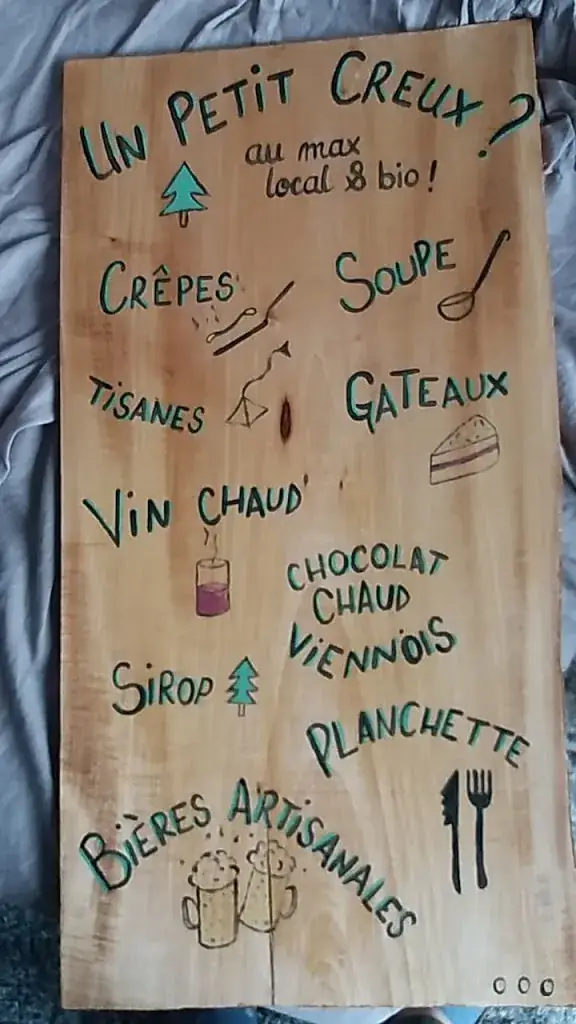 UN PETIT CREUX ?
au max
local & bio !
CRÊPES
SOUPE
TISANES
GATEAUX
VIN CHAUD
CHOCOLAT
CHAUD
VIENNOIS
SIROP
PLANCHETTE
BIÈRES ARTISANALES